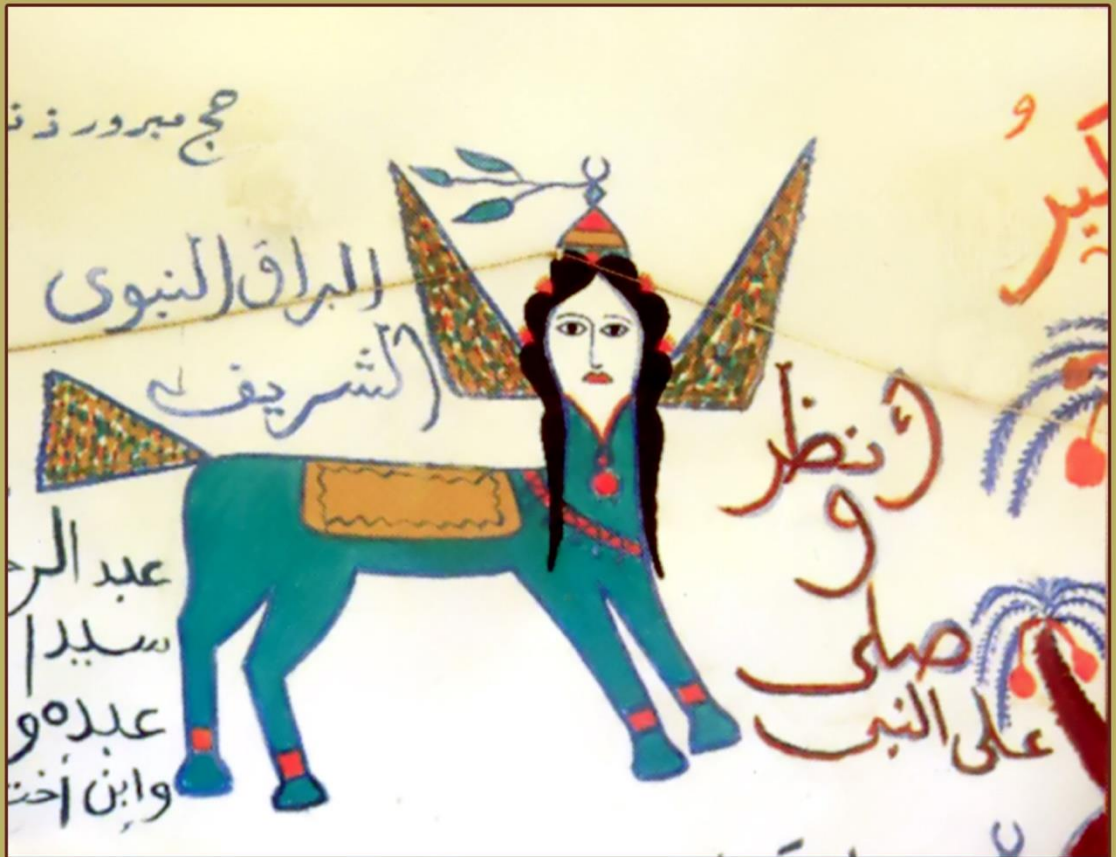 حج مبرور
البراق النبوى
الشريف
أنظر
و
صلى
على النبى
عبد
سيد
عبده و
وابن أخت